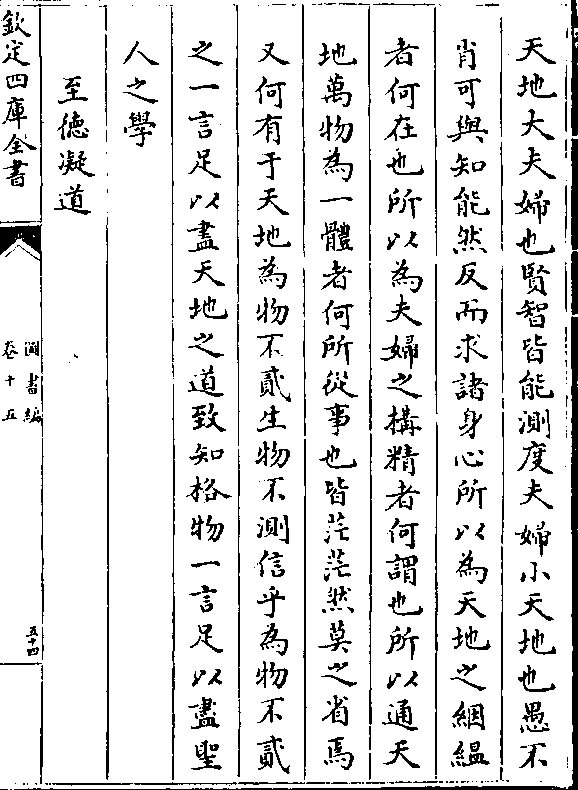 天地大夫婦也賢智皆能測度夫婦小天地也愚不
肖可與知能然反而求諸身心所以為天地之絪緼
者何在也所以為夫婦之構精者何謂也所以通天
地萬物為一體者何所從事也皆茫茫然莫之省焉
又何有于天地為物不貳生物不測信乎為物不貳
之一言足以盡天地之道致知格物一言足以盡聖
人之學
至德凝道
欽定四庫全書
圖書編
卷十五
五十四